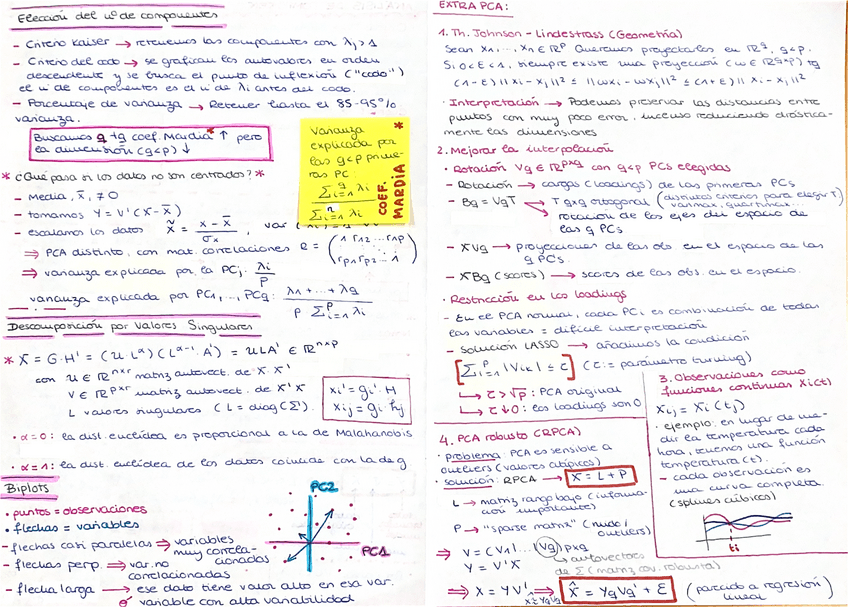 Elección del nº de componentes
- Criterio Kaiser → retenemos las componentes con λj > 1
- Criterio del codo → se grafican los autovalores en orden
descendente y se busca el punto de inflexión ("codo")
el nº de componentes es el nº de λi antes del codo.
- Porcentaje de varianza → Retener hasta el 85-95%
varianza.
Buscamos q tq coef. Mardia* ↑ pero
la dimensión (q<p) ↓
Varianza *
explicada por
las q<p prime-
ras PC:
Σ_{i=1}^{q} λi
Σ_{i=1}^{n} λi
COEF. MARDIA
* ¿Qué pasa si los datos no son centrados? *
- Media, x̄, ≠ 0
- tomamos Y = V'(X - X̄)
- escalamos los datos X̃ = (x - x̄)/σx, var
⇒ PCA distinto, con mat. correlaciones R = (1 r12 ... r1p ⋮ rp1 rp2 ... 1)
⇒ varianza explicada por la PCj: λi/p
varianza explicada por PC1, ..., PCq: (λ1 + ... + λq)/(p Σ_{i=1}^{p} λi)
Descomposición por Valores Singulares
* X = G·H' = (U·L^α)(L^{α-1}·A') = ULA' ∈ ℝ^{n×p}
con U ∈ ℝ^{n×r} matriz autovect. de X·X'
V ∈ ℝ^{p×r} matriz autovect. de X'X
L valores singulares (L = diag(Σ')).
xi' = gi'·H
xij = gi·hj
• α=0: la dist. euclídea es proporcional a la de Malahanobis
• α=1: la dist. euclídea de los datos coincide con la de g
Biplots
• puntos = observaciones
• flechas = variables
- flechas casi paralelas ⇒ variables
muy correla-
cionadas
- flechas perp. ⇒ var. no
correlacionadas
- flecha larga → ese dato tiene valor alto en esa var.
ó variable con alta variabilidad
PC2
PC1
EXTRA PCA:
1. Th. Johnson - Lindestrass (Geometría)
Sean x1, ..., xn ∈ ℝ^p Queremos proyectarlos en ℝ^q, q<p.
Si 0<ε<1, siempre existe una proyección (w ∈ ℝ^{q×p}) tq
(1-ε)||xi - xj||² ≤ ||wxi - wxj||² ≤ (1+ε)||xi - xj||²
• Interpretación → Podemos preservar las distancias entre
puntos con muy poco error, incluso reduciendo drástica-
mente las dimensiones
2. Mejorar la interpolación
• Rotación Vq ∈ ℝ^{p×q} con q<p PCs elegidas
- Rotación → cargas (loadings) de las primeras PCs
- Bq = VqT → T qxq ortogonal (distintos criterios para elegir T)
varimax, quartimax...
rotación de los ejes del espacio de
las q PCs
- XVq → proyecciones de las obs. en el espacio de las
q PC's.
- XBq (scores) → scores de las obs. en el espacio.
• Restricción en los loadings
- En el PCA normal, cada PCi es combinación de todas
las variables = difícil interpretación
- Solución LASSO → añadimos la condición
[Σ_{i=1}^{p} |Vik| ≤ τ] (τ := parámetro tunning)
↳ τ > √p : PCA original
↳ τ ↓ 0 : los loadings son 0
3. Observaciones como
funciones continuas Xi(t)
Xij = Xi(tj)
• ejemplo: en lugar de me-
dir la temperatura cada
hora, tenemos una función
temperatura(t).
- cada observación es
una curva completa.
(splines cúbicos)
ti
4. PCA robusto (RPCA)
• problema: PCA es sensible a
outliers (valores atípicos)
• solución: RPCA → X = L + P
L → matriz rango bajo (informa-
ción importante)
P → "sparse matrix" (ruido /
outliers)
⇒ V = (V1 | ... (Vq) pxq
Y = V'X
autovectores
de Σ (matriz cov. robusta)
⇒ X = YV' ⇒ X̂ = YqVq' + ε (parecido a regresión
X≈YqVq'
lineal)